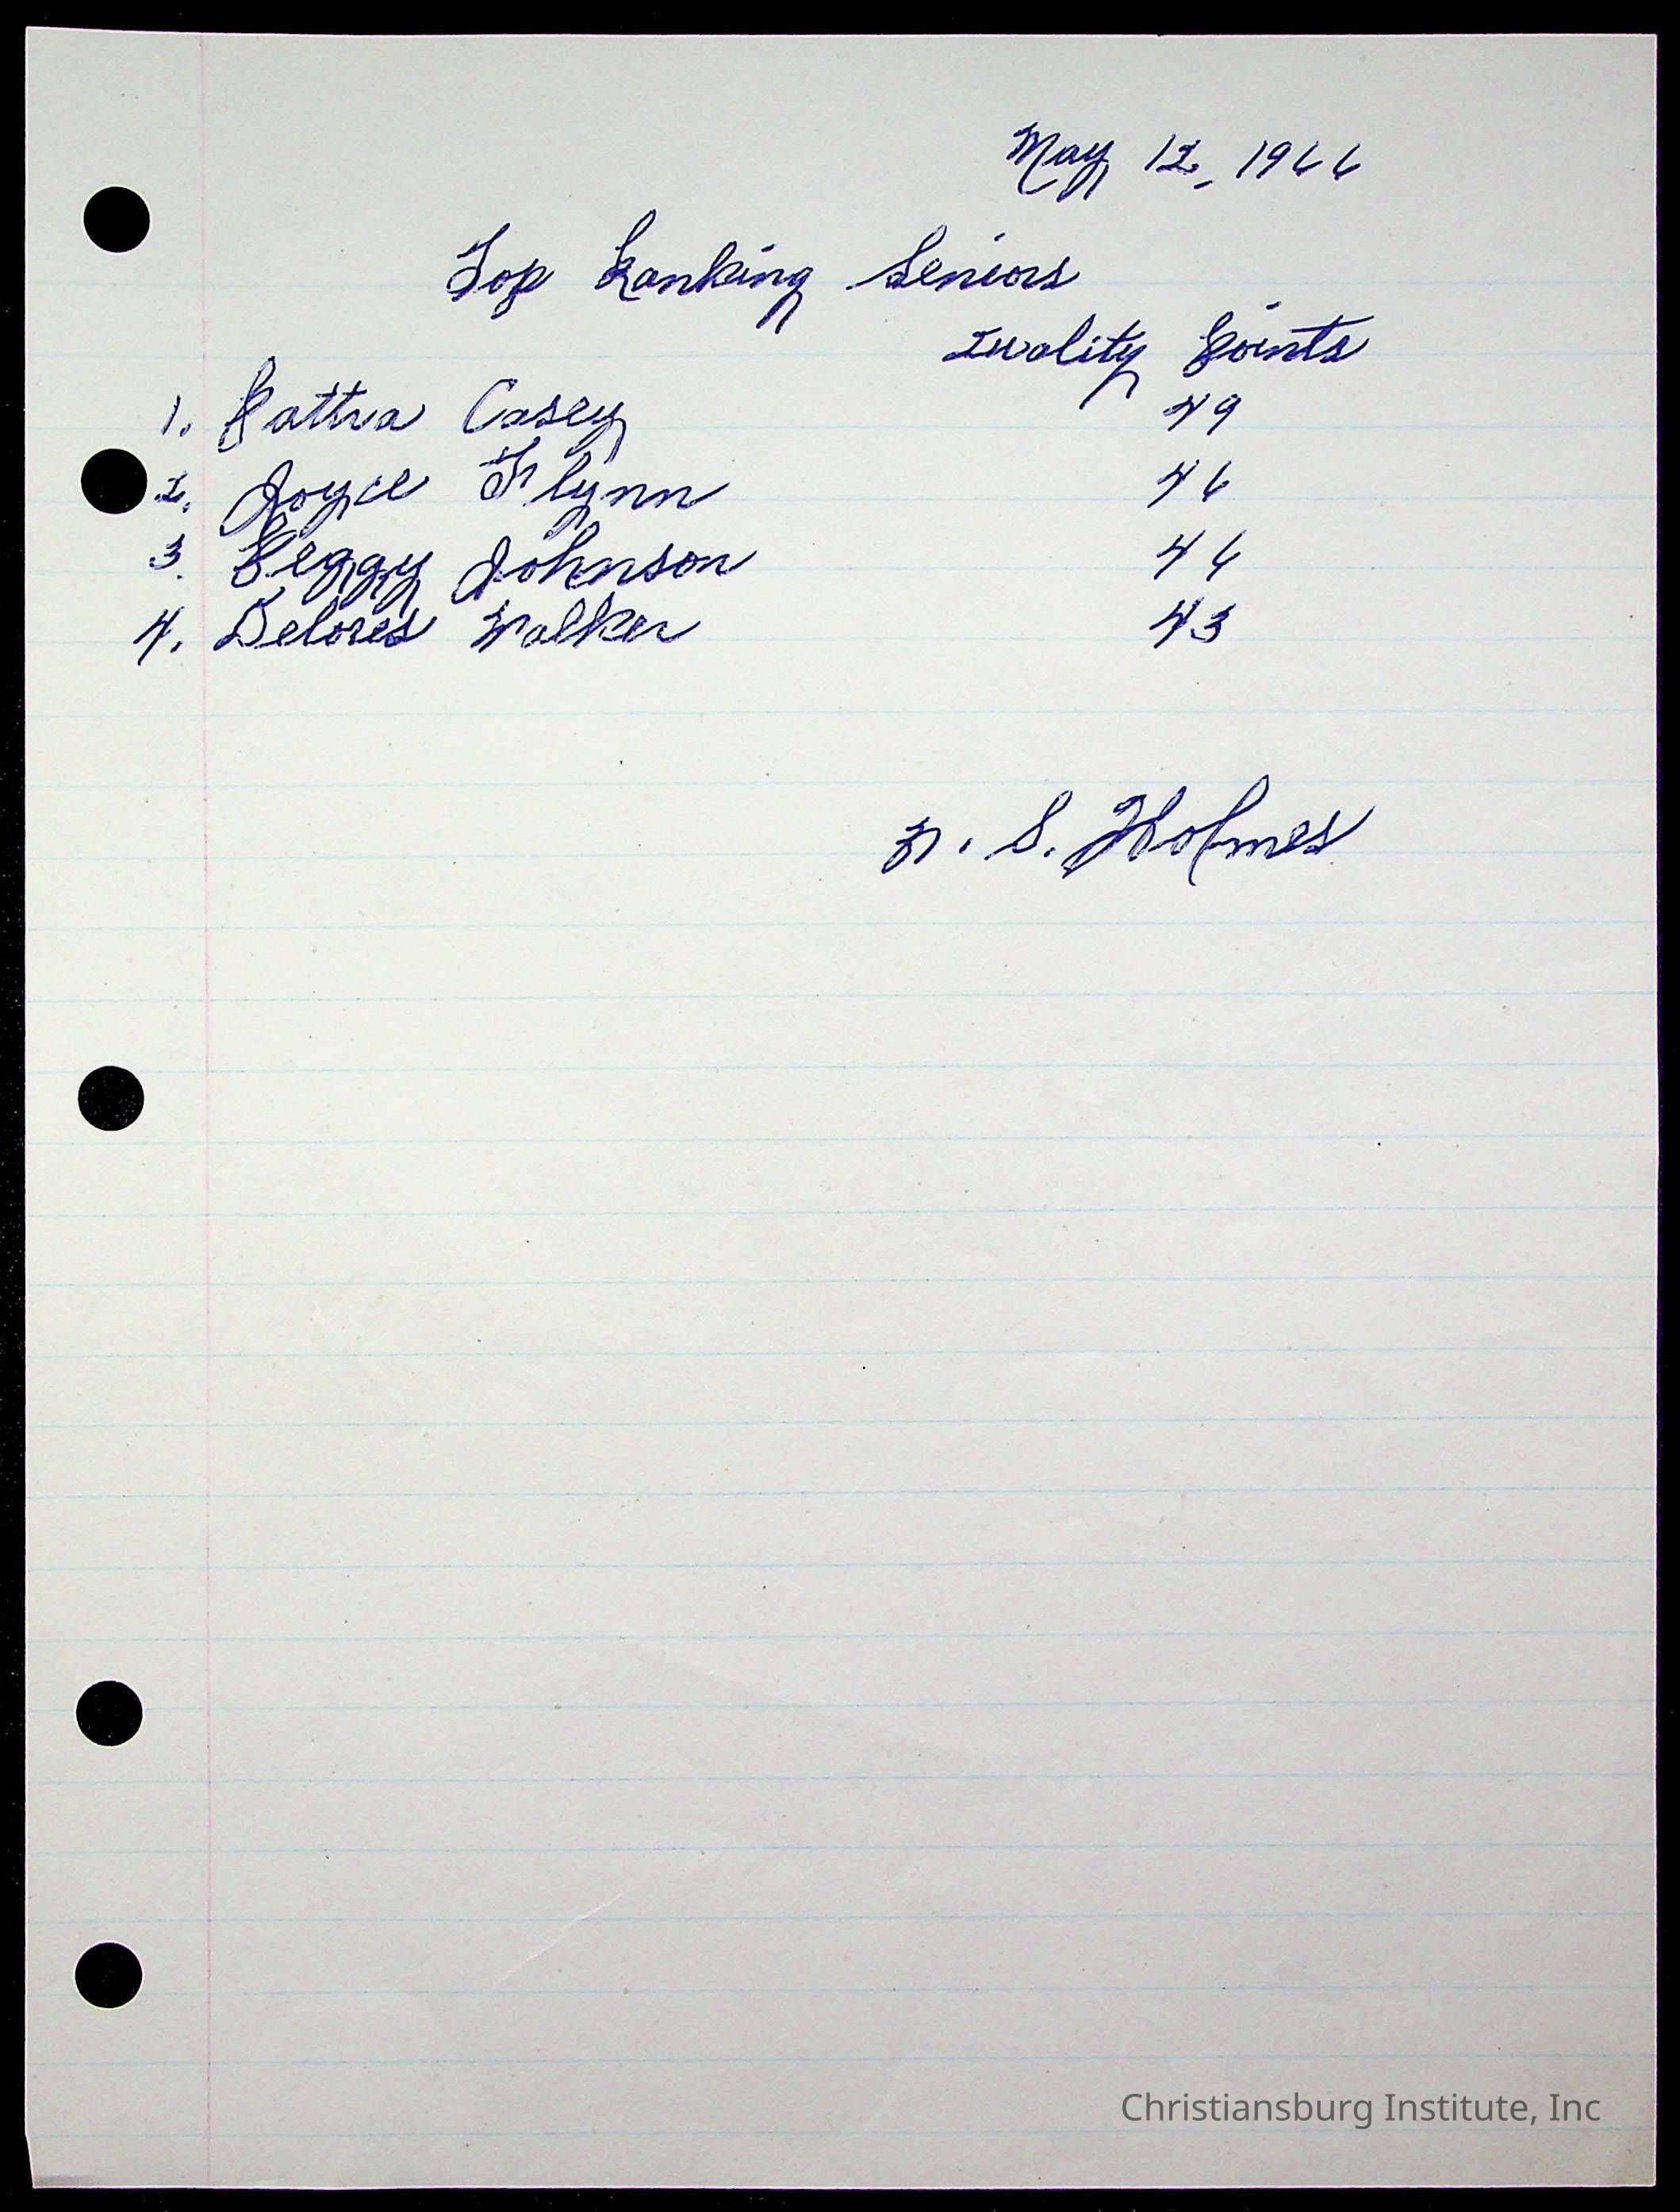 May 12, 1966
Top Ranking Seniors
Quality Points
1. Pattra Casey 49
2. Joyce Flynn 46
3. Peggy Johnson 46
4. Delores Walker 43
N. S. Holmes
Christiansburg Institute, Inc